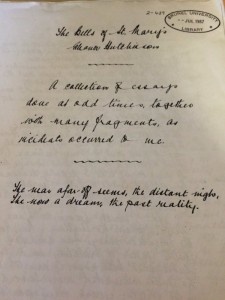 BRUNEL UNIVERSITY
JUL 1987
LIBRARY
The Bells of St. Mary's
Eleanor Hutchinson
A collection of essays
done at odd times, together
with many fragments, as
incidents occurred to me.
The near afar off seems, the distant nigh,
The now a dream, the past reality.